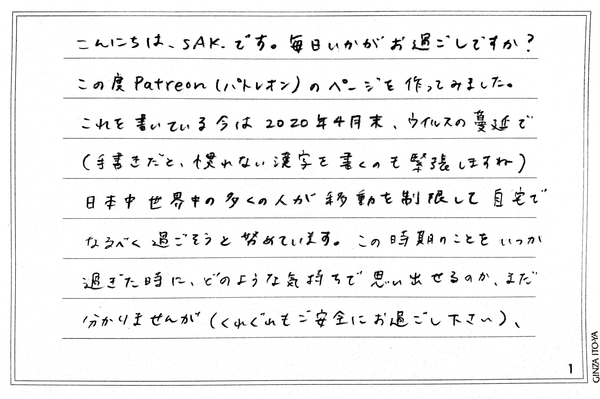 こんにちは、SAK.です。毎日いかがお過ごしですか?
この度Patreon(パトレオン)のページを作ってみました。
これを書いている今は2020年4月末、ウイルスの蔓延で
(手書きだと、慣れない漢字を書くのも緊張しますね)
日本中世界中の多くの人が移動を制限して自宅で
なるべく過ごそうと努めています。この時期のことをいつか
過ぎた時に、どのような気持ちで思い出せるのか、まだ
分かりませんが(くれぐれもご安全にお過ごし下さい)、
1
GINZA ITO-YA